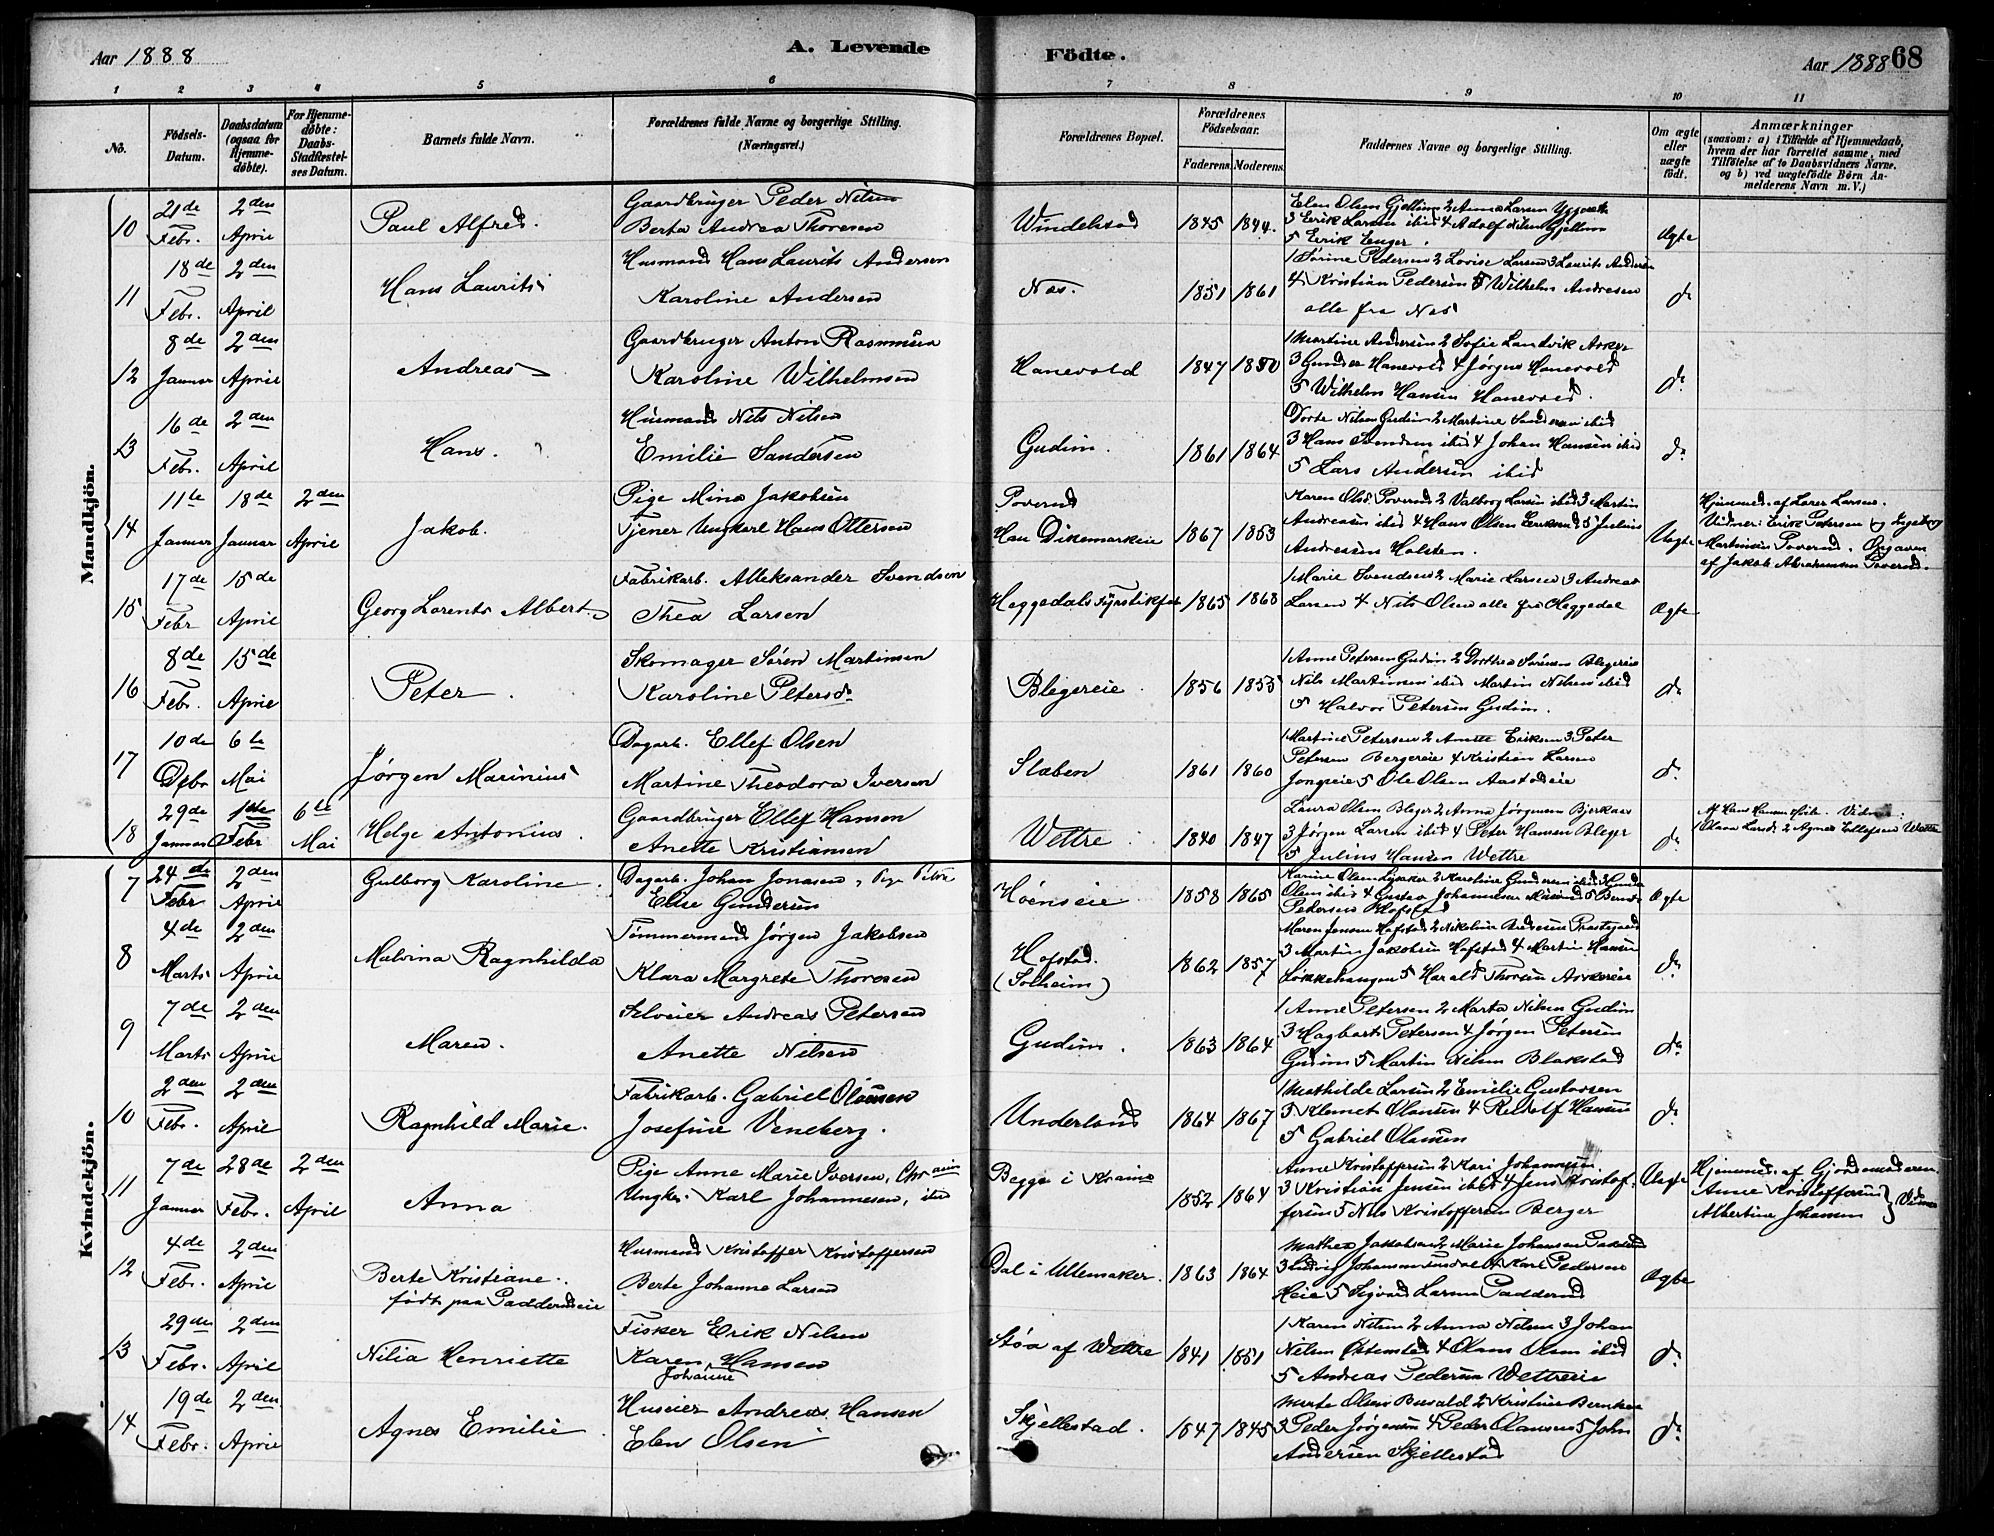 Aar 1888
A. Levende
Födte.
Aar 1888 68
1 2 3 4 5 6 7 8 9 10 11
No.
Födsels-Datum.
Daabsdatum (ogsaa for Hjemmedöbte).
For Hjemmedöbte: Daabs-Stadfæstelses Datum.
Barnets fulde Navn.
Forældrenes fulde Navne og borgerlige Stilling.
(Næringsvei.)
Forældrenes Bopæl.
Forældrenes Födselsaar.
Faderens. Moderens.
Faddernes Navne og borgerlige Stilling.
Om ægte eller uægte födt.
Anmærkninger
(saasom: a) i Tilfælde af Hjemmedaab, hvem der har forrettet samme, med Tilföielse af to Daabsvidners Navne, og b) ved uægtefödte Börn Anmelderens Navn m. V.)
Mandkjön.
10 21de Febr. 2den April Paul Alfred. Gaardbruger Peder Nilsen
Berta Andrea Thoresen 1845 1844. Ægte
3 Eerik Larsen ibid 4 Adolf Nilsen Gjellum
5 Eerik Enger.
11 18de Febr. 2den April Hans Laurits Husmand Hans Laurits Andersen
Karoline Andersen Næs. 1851 1861 do
1 Sørine Pedersen 2 Lovise Larsen 3 Laurits Andersen
4 Kristian Pedersen 5 Wilhelm Andresen
alle fra Næs
12 8de Januar 2den April Andreas Gaardbruger Anton Rasmussen
Karoline Wilhelmsen Hanevold 1847 1850 do
1 Martine Andersen 2 Sofie Landvik Asker
3 Gunder Hanevold 4 Jørgen Hanevold
5 Wilhelm Hansen Hanevold.
13 16de Febr. 2den April Hans. Husmand Nils Nilsen
Emilie Sandersen Gudim. 1861 1864 do
Dorte Nilsen Gudim 2 Martine Sandersen ibid
3 Hans Svendsen ibid 4 Johan Hansen ibid
5 Lars Andersen ibid
14 11te Januar 18de Januar 2den April Jakob. Pige Mina Jakobsen
Tjener Ungkarl Hans Ottersen Poverud
Han Dikemarkeie 1867 1853 Uægte
Karen Olsd. Poverud 2 Valborg Larsen ibid 3 Martin
Andreasen ibid 4 Hans Olsen 5 Julius
Andresen Holsten.
Hjemmed. af Larer Larsen.
Vidner: Erik Petersen og Ingeborg
Martinsen Poverud. Opgaven
af Jakob Abrahamsen Poverud.
15 17de Febr 15de April Georg Lorents Albert Fabrikarb. Alleksander Svendsen
Thea Larsen Heggedals Fyrstikfab 1865 1868 Ægte
1 Marie Svendsen 2 Marie Larsen 3 Andreas
Larsen 4 Nils Olsen alle fra Heggedal
16 8de Febr. 15de April Peter. Skomager Søren Martinsen
Karoline Petersd. Blegereie 1856 1855 do
1 Anne Petersen Gudim 2 Dorthea Sørensen Blegereie
Nils Martinsen ibid Martin Nilsen ibid
5 Halvor Petersen Gudim.
17 10de Debr 6te Mai Jørgen Marinius Dagarb. Ellef Olsen
Martine Theodora Iversen Slæben 1861 1860 do
1 Martine Petersen 2 Anette Eriksen 3 Peter
Petersen Bergereie 4 Kristian Larsen
Jongseie 5 Ole Olsen Aastadeie
18 29de Januar 1ste Febr 6te Mai Helge Antonius. Gaardbruger Ellef Hansen
Anette Kristiansen Wettre 1840 1847 do
Laura Olsen Bleger 2 Anna Jørgensen Bjerkaas
3 Jørgen Larsen ibid 4 Peter Hansen Bleger
5 Julius Hansen Wettre
Vidner:
1 Olava Larsd. 2 Agnes Ellefsen Wettre
Kvindekjön.
7 24de Febr 2den April Gulborg Karoline. Dagarb. Johan Jonasen, Pige
Elise Gundersen Høenseie 1858 1865 Ægte
Petersen Hofstad
8 4de Marts 2den April Malvina Ragnhilda Tømmermand Jørgen Jakobsen
Klara Margrete Thoresen Hofstad.
(Solheim) 1862 1857 do
Maren Jensen Hofstad 2 Nikoline Andersen Præstegaard
3 Martin Jakobsen Hofstad 4 Martin Hansen
Løkkehaugen 5 Harald Thoresen Askereie
9 7de Marts 2den April Maren. Selveier Andreas Petersen
Anette Nilsen Gudim. 1863 1864 do
1 Anne Petersen 2 Marta Nilsen Gudim
3 Hagbart Petersen 4 Jørgen Petersen
Gudim 5 Martin Nilsen Blakstad
10 2den Febr. 2den April Ragnhild Marie. Fabrikarb. Gabriel Olausen
Josefine Veneberg. Underland 1864 1867 do
1 Mathilde Larsen 2 Emilie Gustavsen
3 Klemet Olausen 4 Rudolf Hansen
5 Gabriel Olausen
11 7de Januar 28de Febr. 2den April Anna Pige Anne Marie Iversen,
Ungk. Karl Johannesen, Begge i 1852 1864 Uægte
Anne Kristoffersen 2 Kari Johannesen
3 Kristian Jensen ibid 4 Jens Kristof-
fersen 5 Nils Kristoffersen Berger
Hjemmed. af Gjordemoderen.
Anne Kristoffersen
Albertine Johansen } Vidner
12 4de Febr. 2den April Berte Kristiane.
født paa Padderudeie Husmand Kristoffer Kristoffersen
Berte Johanne Larsen Dal i Ullensaker. 1863 1864 Ægte
Mathea Jakobsen 2 Marie Johansen Padderud
3 Ludvig Johannsen 4 Karl Pedersen
Heie 5 Sigvard Larsen Padderud
13 29de Febr. 2den April Nilia Henriette Fisker Erik Nilsen
Karen Johanne Hansen Støa af Wettre 1841 1851 do
1 Karen Nilsen 2 Anna Nilsen 3 Johan
Nilsen 4 Olaus Olsen ibid
5 Andreas Pedersen Wettreeie
14 19de Febr. 2den April Agnes Emilie. Huseier Andreas Hansen
Elen Olsen Skjellestad. 1847 1845 do
Merte Olsen 2 Kristine
3 Peder Jørgensen 4 Peder Olausen 5 John
Andersen Skjellestad